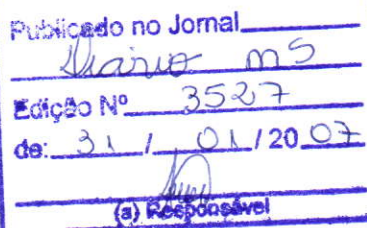 Publicado no Jornal
Diário MS
Edição Nº 3527
de: 31 / 01 / 20 07
(a) Responsável